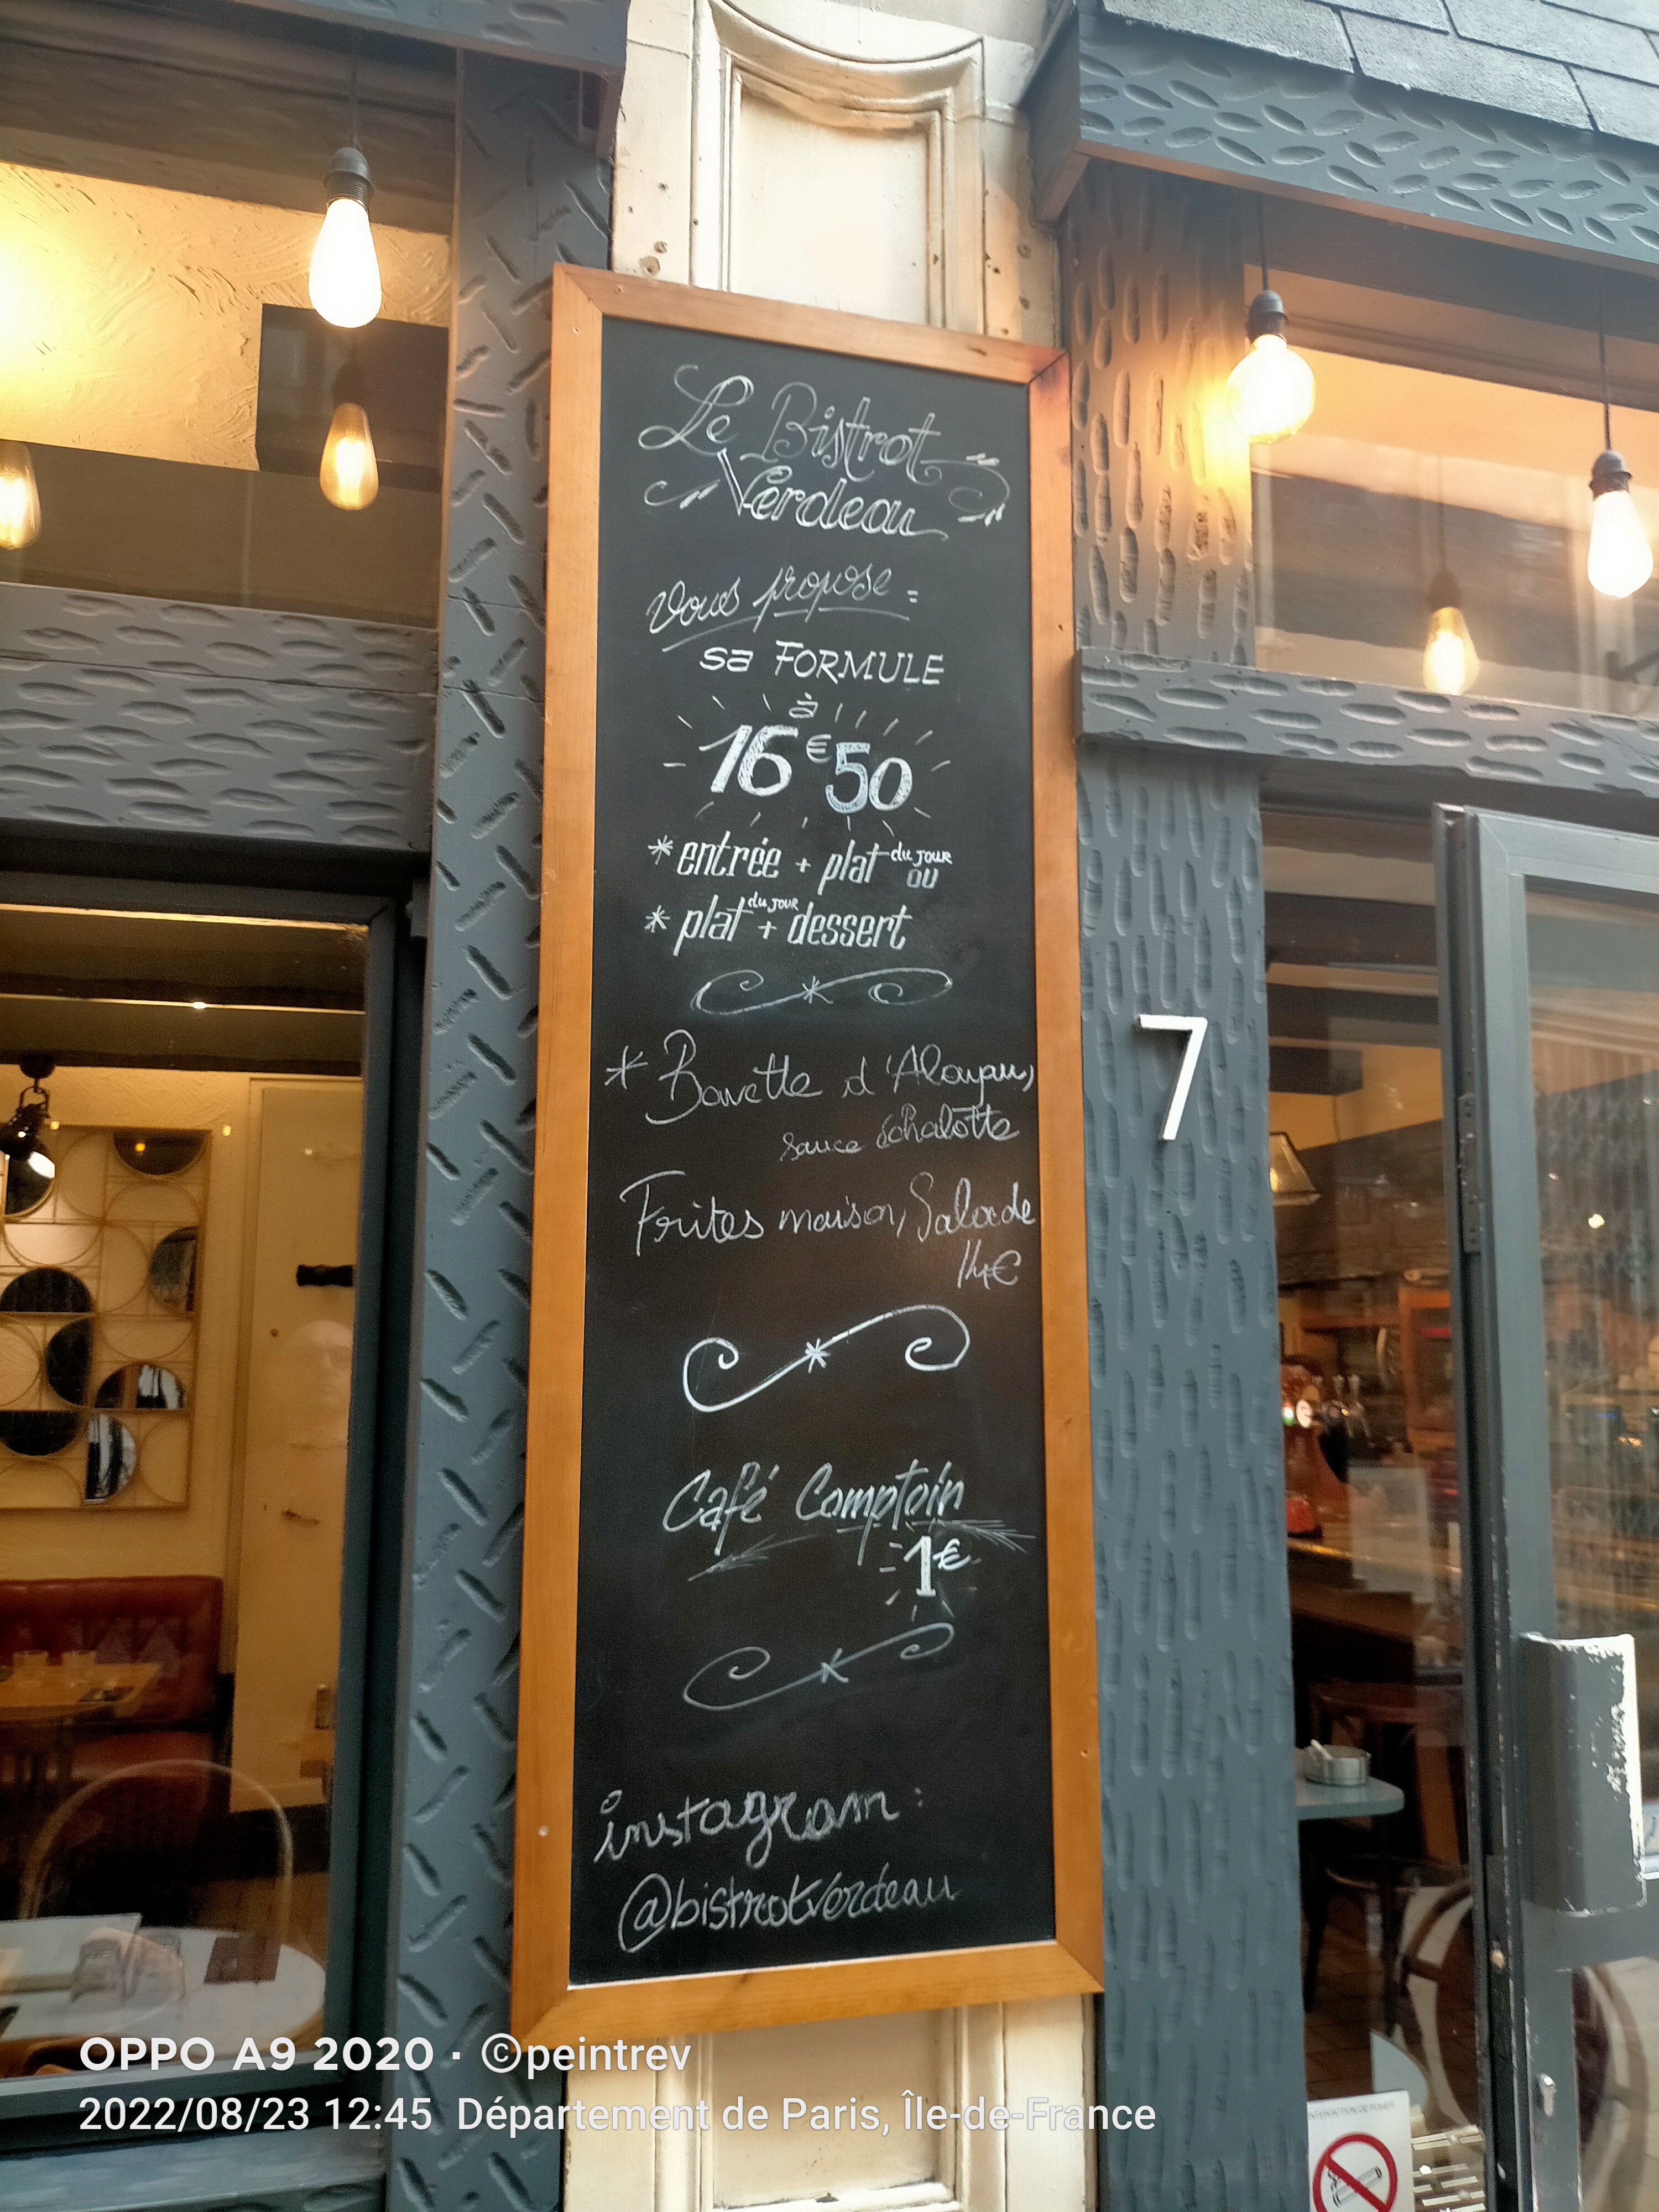 Le Bistrot
Verdeau
vous propose :
sa FORMULE
à
16€50
* entrée + plat du JOUR
ou
* plat du JOUR + dessert
* Bavette d'Aloyau,
sauce échalotte
Frites maison, Salade
14€
Café Comptoir
1€
instagram :
@bistrotverdeau
7
INTERDICTION DE FUMER
OPPO A9 2020 · ©peintrev
2022/08/23 12:45 Département de Paris, Île-de-France